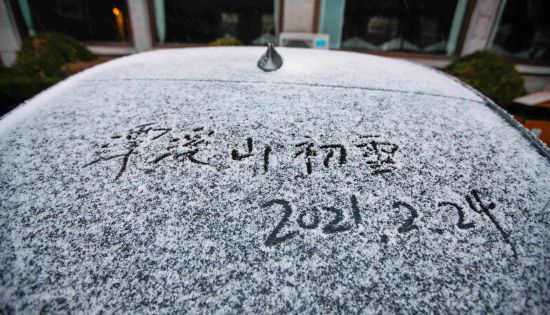 潭溪山初雪
2021.2.24